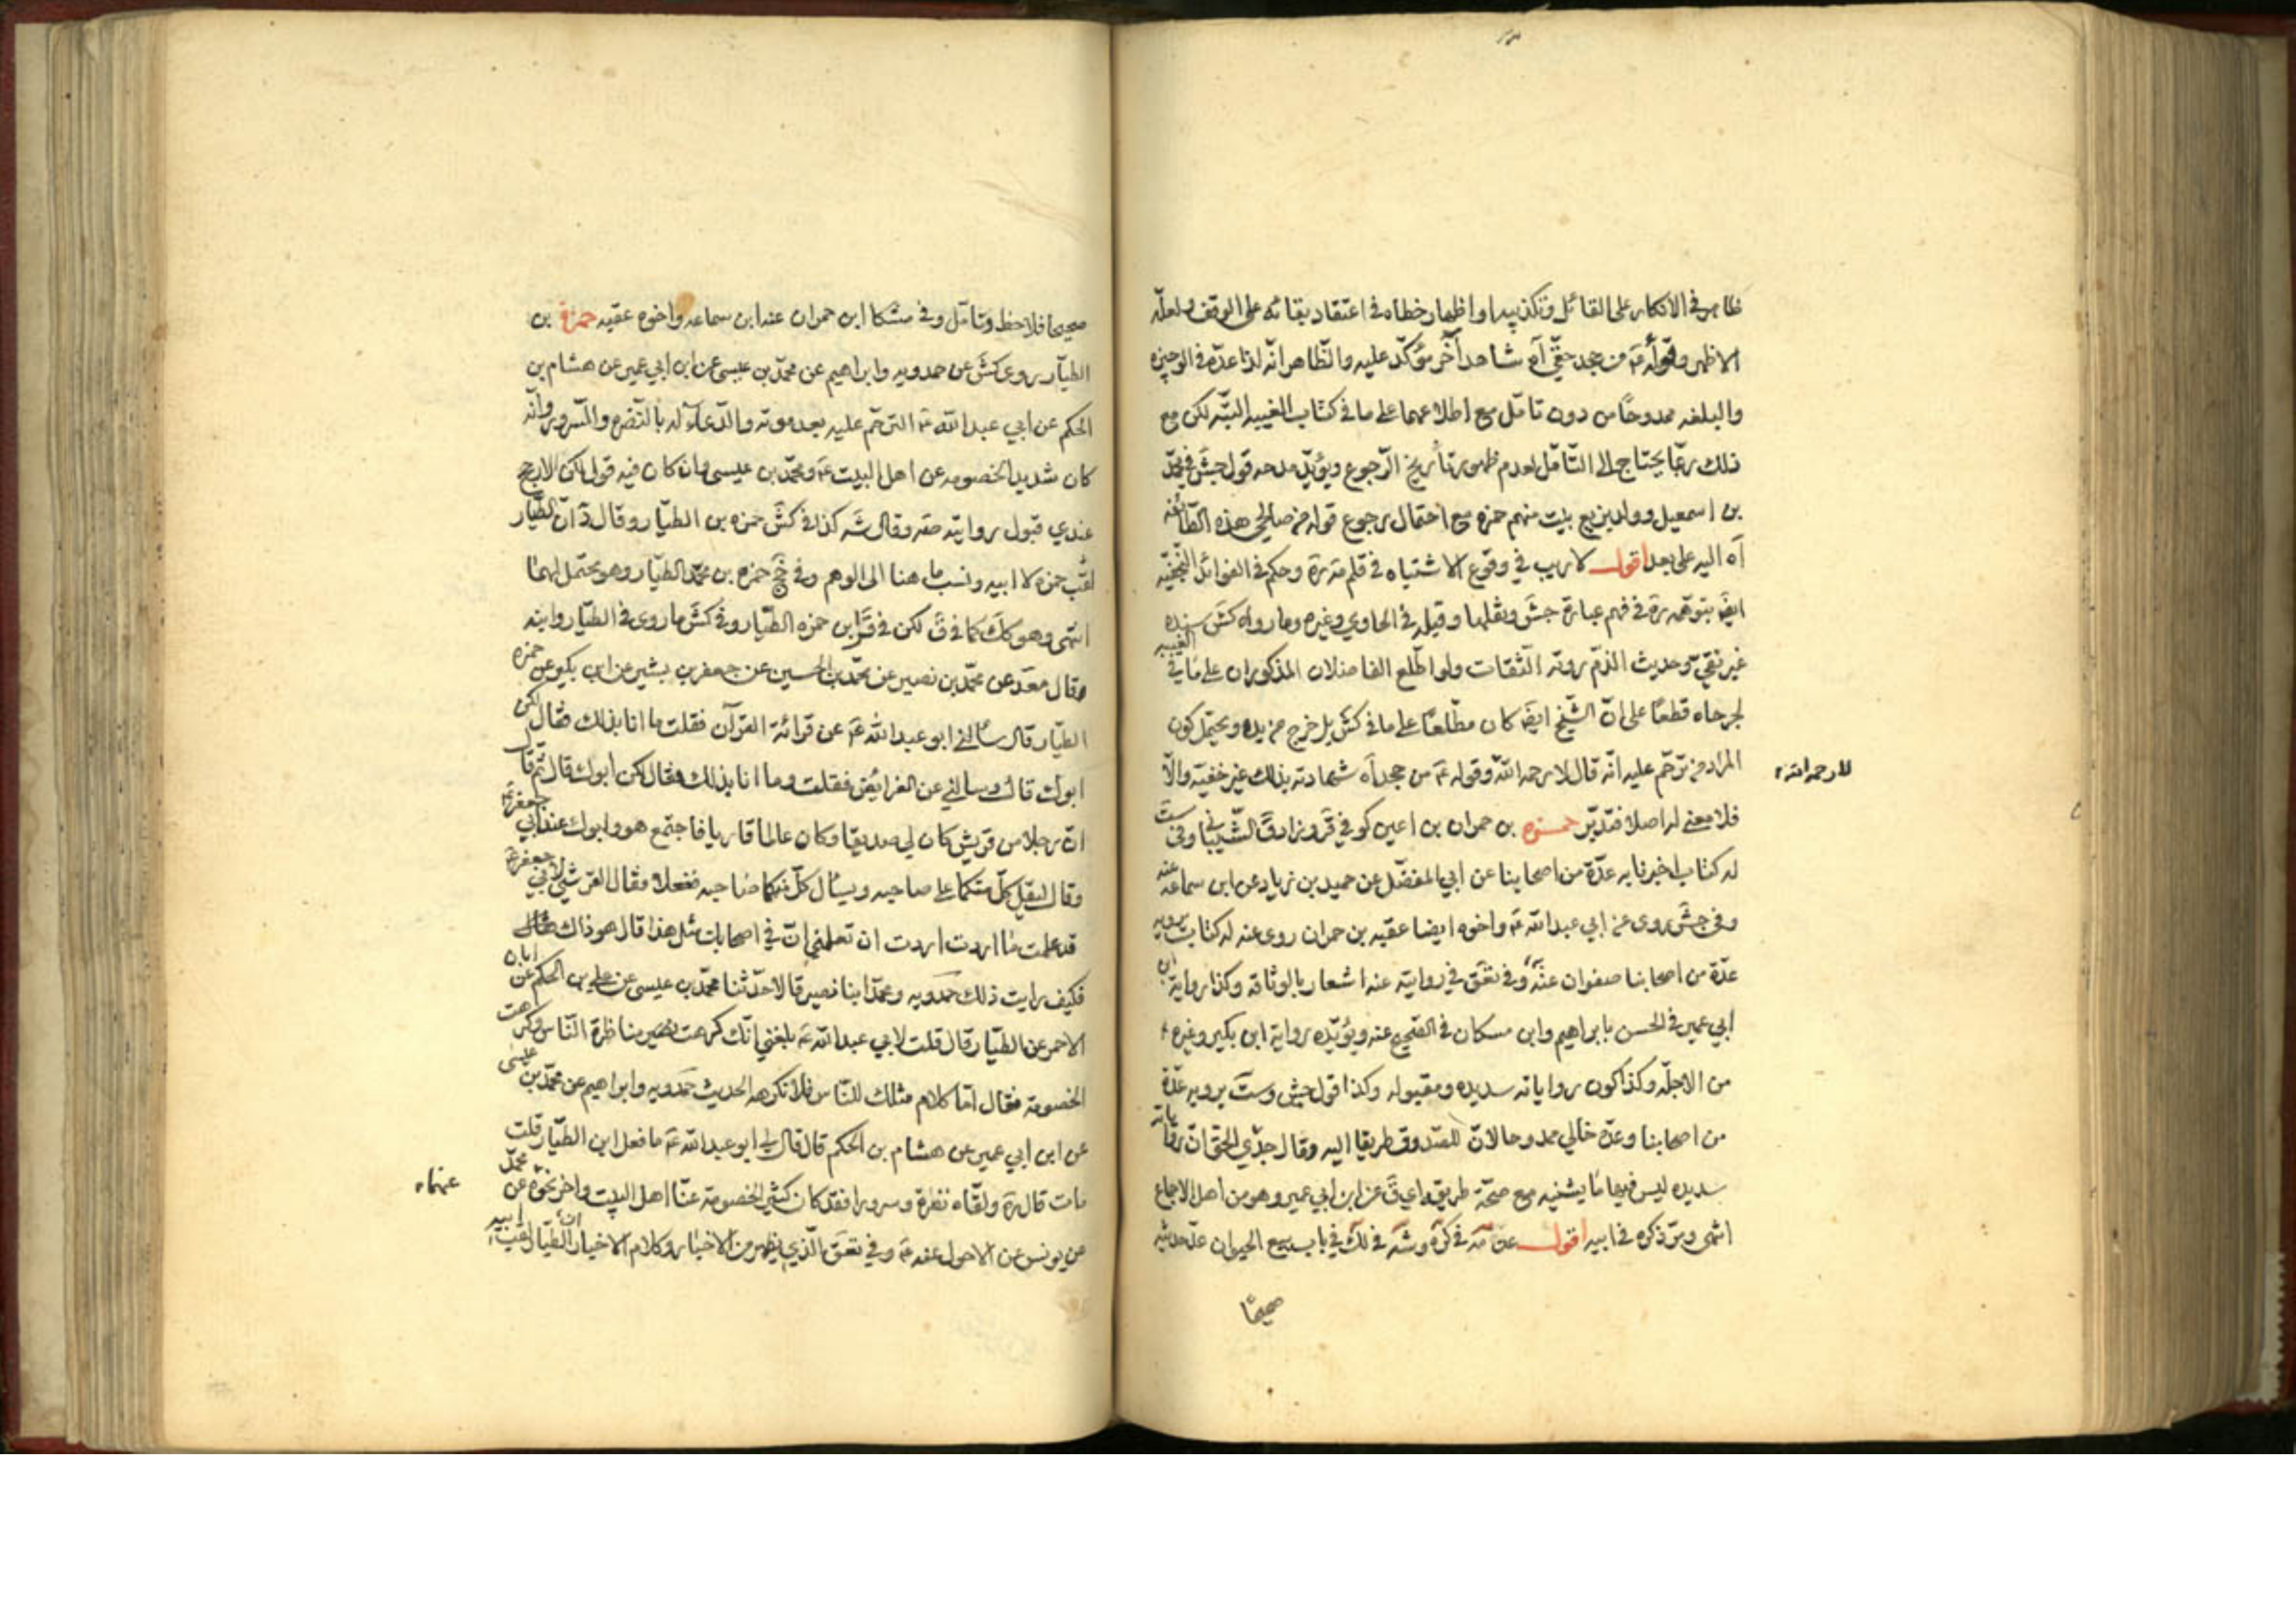 ظاهر في الانكار على القائل وتكذيبه واظهار خطاه في اعتقاد بقائه على الوقف ولعلّه
الاظهر وقوله ع من جحد حقّي آه شاهد آخر مؤكّد عليه والظّاهر انّه لذا عدّه في الوجيزه
والبلغه ممدوحًا من دون تامّل مع اطلاعهما على ما في كتاب الغيبه البتّه لكن مع
ذلك ربّما يحتاج الى التّامّل لعدم ظهور تأريخ الرّجوع ويؤيّد مدحه قول جش في محمّد
بن اسمعيل وولد بزيع بيت منهم حمزه مع احتمال رجوع قوله من صالحي هذه الطّائفه
آه اليه على بعد اقول لا ريب في وقوع الاشتباه في قلم مه ره وحكم في الفوائد النّجفيّه
ايضَ بتوهّمه ره في فهم عبارة جش ونقلها وقيله في الحاوي وغيره وما رواه كش سنده
غير نقيّ وحديث الذمّ روته الثّقات ولو اطّلع الفاضلان المذكوران على ما في الغيبه
لجرحاه قطعًا على انّ الشّيخ ايضَ كان مطّلعًا على ما في كش بل خرج من يده ويحتمل كون
المراد من ترحّم عليه انّه قال لا رحمه اللّه وقوله ع من جحد آه شهادته بذلك غير خفيّه والّا
لا رحمه اللّه
فلا معنى له اصلا فتدبّر حمزه بن حمران بن اعين كوفي في قر وزاد ق الشّيباني وفي ست
له كتاب اخبرنا به عدّة من اصحابنا عن ابي المفضّل عن حميد بن زياد عن ابن سماعه عنه
وفي جش روى عن ابي عبد اللّه ع واخوه ايضا عقبه بن حمران روى عنه له كتاب يرويه
عدّة من اصحابنا صفوان عنه وفي تعق في روايته عنه اشعار بالوثاقه وكذا رواية ابن
ابي عمير في الحسن بابراهيم وابن مسكان في الصّحيح عنه ويؤيّده رواية ابن بكير وغيره
من الاجلّه وكذا كون رواياته سديده ومقبوله وكذا قول جش وست يرويه عدّة
من اصحابنا وعدّه خالي ممدوحا لانّ للصّدوق طريقا اليه وقال جدّي الحقّ انّ رواياته
سديده ليس فيها ما يشنيه مع صحّة طريقه اعني ق عن ابن ابي عمير وهو من اهل الاجماع
انتهى ومرّ ذكره في ابيه اقول عن مه في كره وشه في لك في باب بيع الحيوان عدّ حديثه
صحيحًا
صحيحا فلاحظ وتامّل وفي مشكا ابن حمران عنه ابن سماعه واخوه عقبه حمزة بن
الطيّار روى كش عن حمدويه وابراهيم عن محمّد بن عيسى عن ابن ابي عمير عن هشام بن
الحكم عن ابي عبد اللّه ع الترحّم عليه بعد موته والدّعاء له بالنّضرة والسّرور وانّه
كان شديد الخصومه عن اهل البيت ع ومحمّد بن عيسى وان كان فيه قول لكن الارجح
عندي قبول روايته صه وقال شه كذا في كش حمزه بن الطيّار وقال د انّ الطيّار
لقب حمزه لا ابيه ونسب ما هنا الى الوهم وفي جخ حمزه بن محمّد الطيّار وهو يحتمل لهما
انتهى وهو كك كما في ق لكن في قر ابن حمزه الطّيّار وفي كش ما روى في الطيّار وابنه
وقال معد عن محمّد بن نصير عن محمّد بن الحسين عن جعفر بن بشير عن ابن بكير عن حمزه
الطيّار قال سألني ابو عبد اللّه ع عن قرائة القرآن فقلت ما انا بذلك فقال لكن
ابوك قال وسالني عن الفرائض فقلت وما انا بذلك فقال لكن ابوك قال ثمّ قال
انّ رجلا من قريش كان لي صديقا وكان عالما قاريا فاجتمع هو وابوك عند ابي جعفر ع
وقال ليقبل كلّ منكما على صاحبه ويسأل كلّ منكما صاحبه ففعلا وقال القرشي لابي جعفر ع
قد علمت ما اردت اردت ان تعلمني انّ في اصحابك مثل هذا قال هو ذاك
فكيف رايت ذلك حمدويه ومحمّد ابنا نصير قالا حدّثنا محمّد بن عيسى عن علي بن الحكم عن ابان
الاحمر عن الطيّار قال قلت لابي عبد اللّه ع بلغني انّك كرهت مناظرة النّاس وكرهت
الخصومة فقال امّا كلام مثلك للنّاس فلا نكرهه الحديث حمدويه وابراهيم عن محمّد بن عيسى
عن ابن ابي عمير عن هشام بن الحكم قال قال لي ابو عبد اللّه ع ما فعل ابن الطيّار قلت
مات قال ره ولقّاه نضرة وسرورا فقد كان شديد الخصومة عنّا اهل البيت واخر نحوه عن محمّد
عنهما
عن يونس عن الاحول عنه ع وفي تعق الّذي يظهر من الاخبار وكلام الاخيار انّ الطيّار لقب ابيه